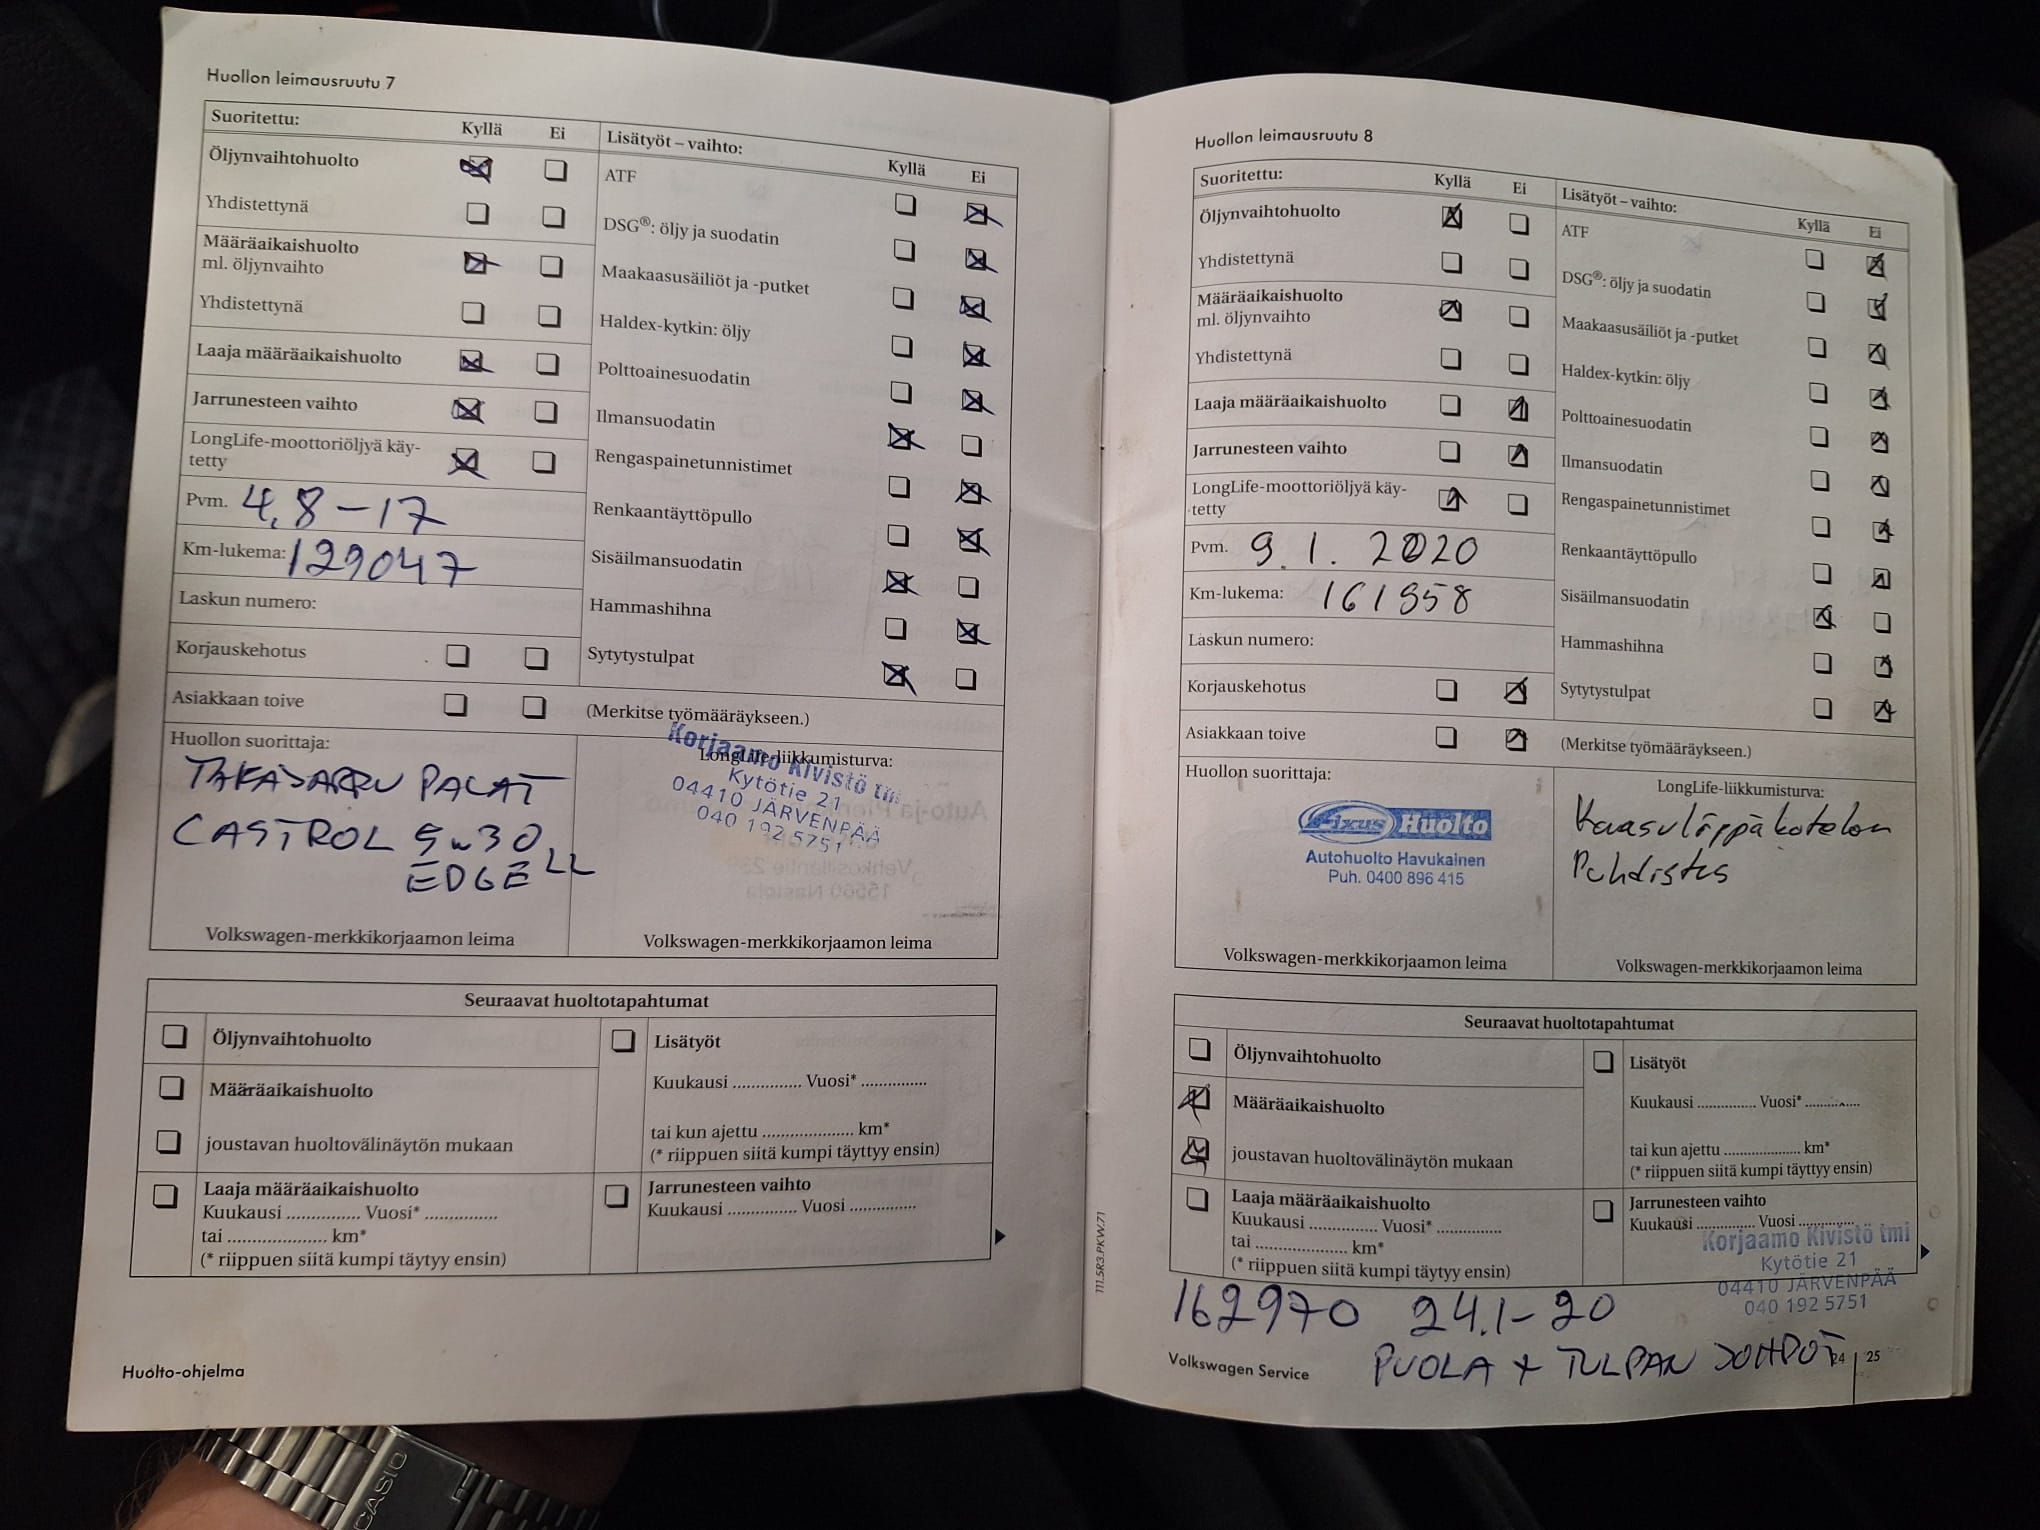 Huollon leimausruutu 7
Suoritettu: Kyllä Ei
Öljynvaihtohuolto
Yhdistettynä
Määräaikaishuolto
ml. öljynvaihto
Yhdistettynä
Laaja määräaikaishuolto
Jarrunesteen vaihto
LongLife-moottoriöljyä käy-
tetty
Pvm. 4.8-17
Km-lukema: 129047
Laskun numero:
Korjauskehotus
Asiakkaan toive
Lisätyöt – vaihto: Kyllä Ei
ATF
DSG®: öljy ja suodatin
Maakaasusäiliöt ja -putket
Haldex-kytkin: öljy
Polttoainesuodatin
Ilmansuodatin
Rengaspainetunnistimet
Renkaantäyttöpullo
Sisäilmansuodatin
Hammashihna
Sytytystulpat
(Merkitse työmääräykseen.)
Huollon suorittaja:
TAKAJARRU PALAT
CASTROL 5w30
EDGE LL
Volkswagen-merkkikorjaamon leima
LongLife-liikkumisturva:
Korjaamo Kivistö tmi
Kytötie 21
04410 JÄRVENPÄÄ
040 192 5751
Volkswagen-merkkikorjaamon leima
Seuraavat huoltotapahtumat
Öljynvaihtohuolto
Määräaikaishuolto
joustavan huoltovälinäytön mukaan
Laaja määräaikaishuolto
Kuukausi ............... Vuosi* ...............
tai ..................... km*
(* riippuen siitä kumpi täytyy ensin)
Lisätyöt
Kuukausi ............... Vuosi* ...............
tai kun ajettu ..................... km*
(* riippuen siitä kumpi täyttyy ensin)
Jarrunesteen vaihto
Kuukausi ............... Vuosi ...............
Huolto-ohjelma
Huollon leimausruutu 8
Suoritettu: Kyllä Ei
Öljynvaihtohuolto
Yhdistettynä
Määräaikaishuolto
ml. öljynvaihto
Yhdistettynä
Laaja määräaikaishuolto
Jarrunesteen vaihto
LongLife-moottoriöljyä käy-
tetty
Pvm. 9.1.2020
Km-lukema: 161958
Laskun numero:
Korjauskehotus
Asiakkaan toive
Lisätyöt – vaihto: Kyllä Ei
ATF
DSG®: öljy ja suodatin
Maakaasusäiliöt ja -putket
Haldex-kytkin: öljy
Polttoainesuodatin
Ilmansuodatin
Rengaspainetunnistimet
Renkaantäyttöpullo
Sisäilmansuodatin
Hammashihna
Sytytystulpat
(Merkitse työmääräykseen.)
Huollon suorittaja:
Fixus Huolto
Autohuolto Havukainen
Puh. 0400 896 415
Volkswagen-merkkikorjaamon leima
LongLife-liikkumisturva:
Kaasuläppäkotelon
Puhdistus
Volkswagen-merkkikorjaamon leima
Seuraavat huoltotapahtumat
Öljynvaihtohuolto
Määräaikaishuolto
joustavan huoltovälinäytön mukaan
Laaja määräaikaishuolto
Kuukausi ............... Vuosi* ...............
tai ..................... km*
(* riippuen siitä kumpi täytyy ensin)
Lisätyöt
Kuukausi ............... Vuosi* ...............
tai kun ajettu ..................... km*
(* riippuen siitä kumpi täyttyy ensin)
Jarrunesteen vaihto
Kuukausi ............... Vuosi ...............
Korjaamo Kivistö tmi
Kytötie 21
04410 JÄRVENPÄÄ
040 192 5751
162970 24.1-20
PUOLA + TULPAN JOHDOT
111.5R3.PKW.71
Volkswagen Service
24 25
CASIO